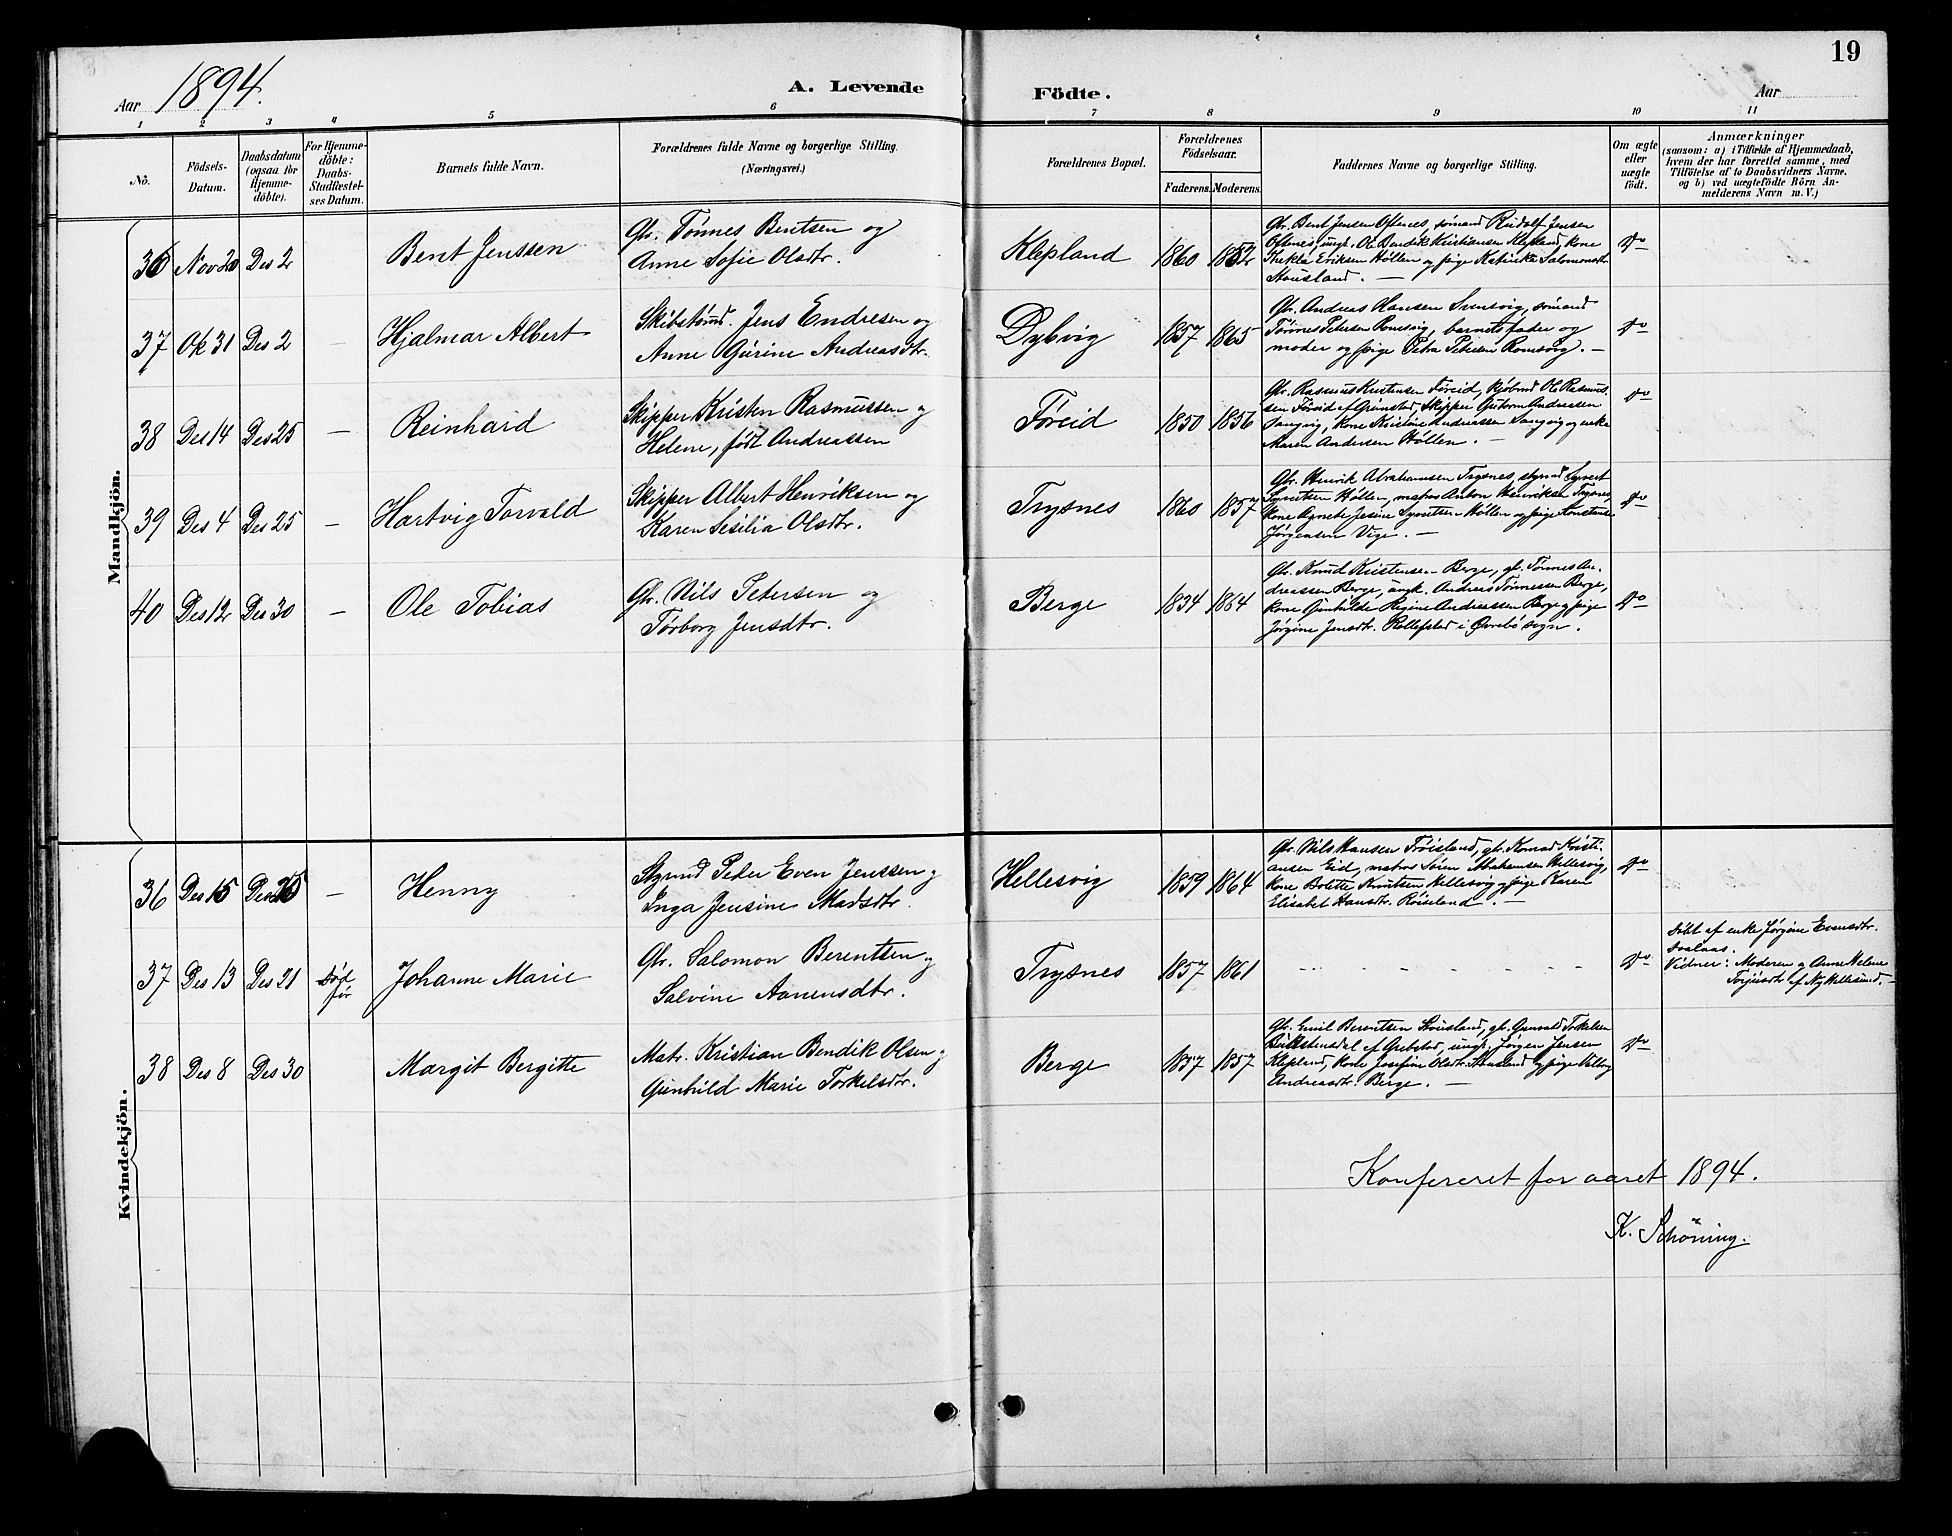 19
Aar 1894.
A. Levende
Födte.
Aar
1 2 3 4 5 6 7 8 9 10 11
No.
Födsels-
Datum.
Daabsdatum
(ogsaa for
Hjemme-
döbte).
For Hjemme-
döbte:
Daabs-
Stadfæstel-
ses Datum.
Barnets fulde Navn.
Forældrenes fulde Navne og borgerlige Stilling.
(Næringsvei.)
Forældrenes Bopæl.
Forældrenes
Födselsaar.
Faderens. Moderens.
Faddernes Navne og borgerlige Stilling.
Om ægte
eller
uægte
födt.
Anmærkninger
(saasom: a) i Tilfælde af Hjemmedaab,
hvem der har forrettet samme, med
Tilföielse af to Daabsvidners Navne,
og b) ved uægtefödte Börn An-
melderens Navn m. V.)
Mandkjön.
36 Nov 20 Des 2
Bent Jenssen
Gbr. Tønnes Bentsen og
Anne Sofie Olsdtr.
Klepland
1860
Gbr. Bent Jensen Oftenes, sømand Rudolf Jensen
Oftenes, ungk. Ole Bendik Kristiansen Klepland, kone
Thekla Eriksen Høllen og pige Katinka Salomonsdtr.
Stausland. —
Do
37 Ok 31 Des 2 —
Hjalmar Albert
Skibstømd. Jens Endresen og
Anne Gurine Andreasdtr.
Dybvig
1857 1865
Gbr. Andreas Hansen Svensvig, sømand
Tønnes Petersen Romsvig, barnets fader og
moder og pige Petra Petersen Romsvig. —
Do
38 Des 14 Des 25 —
Reinhard
Skipper Kristen Rasmussen og
Helene, født Andreassen
Føreid
1850 1856
Gbr. Rasmus Kristensen Føreid, Ole Rasmus-
sen Føreid af Grimstad, Skipper Guttorm Andreassen
Langvig, kone Kristine Andreassen Langvig og enke
Maren Andersen Høllen. —
Do
39 Des 4 Des 25 —
Hartvig Torvald
Skipper Albert Henriksen og
Karen Sesilia Olsdtr.
Trysnes
1860 1857
Gbr. Henrik Abrahamsen Trysnes, styrmd Syvert
Syvertsen Høllen, matros Anton Henriksen Trysnes,
kone Agnete Jesine Syvertsen Høllen og pige Konstanse
Jørgensen Vige. —
Do
40 Des 12 Des 30 —
Ole Tobias
Gbr. Nils Petersen og
Torborg Jensdtr.
Berge
1834 1864
Gbr. Knud Kristensen Berge, gbr. Tønnes An-
dreassen Berge, ungk. Andreas Tønnessen Berge,
kone Gunhilde Regine Andreassen Berge og pige
Jørgine Jensdtr. Rollefstad i Øvrebø sogn.
Do
Kvindekjön.
36 Des 15 Des 25 —
Henny
Styrmd Peder Even Jenssen og
Inga Jensine Madsdtr.
Hellesvig
1859 1864
Gbr. Nils Hansen Frøisland, gbr. Konrad Kristi-
ansen Eid, matros Søren Abrahamsen Hellesvig,
kone Bolette Knutsen Hellesvig og pige Karen
Elisabet Hansdtr. Røisland. —
Do
37 Des 13 Des 21 død
før
Johanne Marie
Gbr. Salomon Berentsen og
Salvine Aanensdtr.
Trysnes
1857 1861
- - - - - - - -
Do
Døbt af enke Jørgine Evensdtr.
Vidner: Moderen og Anne Helene
Torjusdtr af Ny Hellesund. —
38 Des 8 Des 30
Margit Bergitte
Matr. Kristian Bendik Olsen og
Gunhild Marie Torkelsdtr.
Berge
1857 1857
Gbr. Emil Berentsen Stausland, gbr. Gunvald Torkelsen
af Grebstad, ungk. Jørgen Jensen
Klepland, kone Josefine Olsdtr. Stausland og pige Valborg
Andreasdtr. Berge. —
Do
Konfereret for aaret 1894.
K. Schöning.